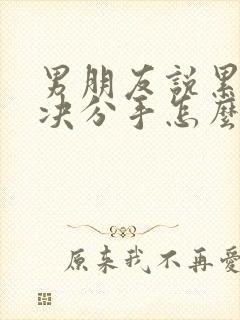 男朋友說累
决分手怎麼
原来我不再愛